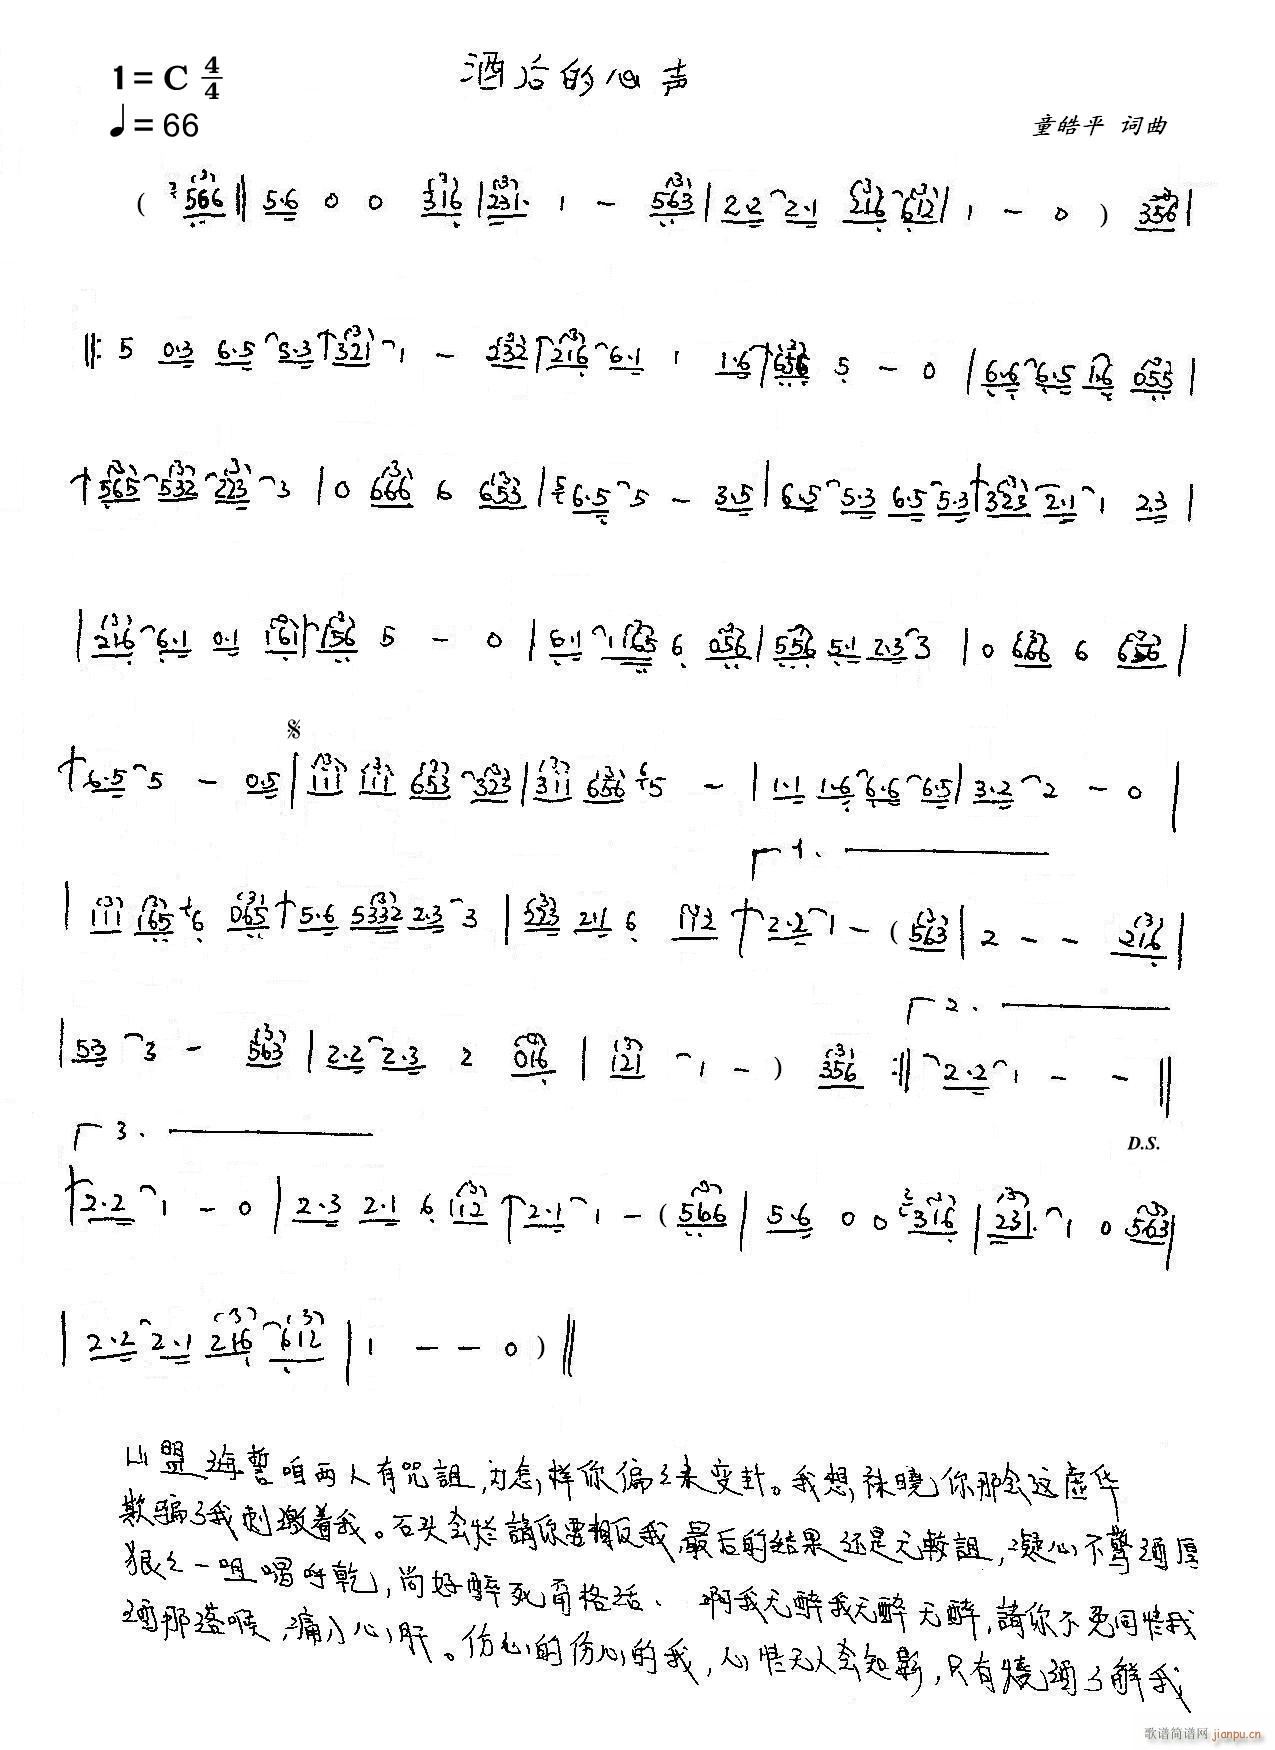 1=C 4/4
酒后的心声
♩=66
童皓平 词曲
( 566 ‖ 5·6 0 0 316 | 231· 1 - 563 | 2·2 2·1 216 612 | 1 - 0 ) 356 |
‖: 5 0·3 6·5 5·3 321 1 - 232 216 6·1 1 1·6 656 5 - 0 | 6·6 6·5 1·6 055 |
565 532 223 3 | 0 666 6 653 | 6·5 5 - 3·5 | 6·5 5·3 6·5 5·3 323 2·1 1 2·3 |
| 216 6·1 0·1 161 156 5 - 0 | 6·1 1165 6 056 | 556 5·1 2·3 3 | 0 666 6 656 |
6·5 5 - 0·5 | 111 111 653 323 | 311 656 5 - | 1·1 1·6 6·6 6·5 | 3·2 2 - 0 |
1.
| 111 165 6 065 5·6 5332 2·3 3 | 223 2·1 6 2·2 1 - ( 563 | 2 - - 216 |
2.
| 53 3 - 563 | 2·2 2·3 2 016 | 121 1 - ) 356 :‖ 2·2 1 - - ‖
3.
D.S.
2·2 1 - 0 | 2·3 2·1 6 112 2·1 1 - ( 566 | 5·6 0 0 316 | 231· 1 0 563 |
| 2·2 2·1 216 612 | 1 - - 0 ) ‖
山盟海誓咱两人有咒詛，为怎样你偏来变卦。我想袜晓你那会这虚华
欺骗了我刺激着我。石头会烂請你要相反我，最后的结果还是无較詛，凝心不驚酒厚
狠一咀喝呼乾，尚好醉死甭格活、啊我无醉我无醉无醉，請你不免同情我
酒那落喉，痛入心肝。伤心的伤心的我，心情无人会知影，只有燒酒了解我
歌谱简谱网 jianpu.cn